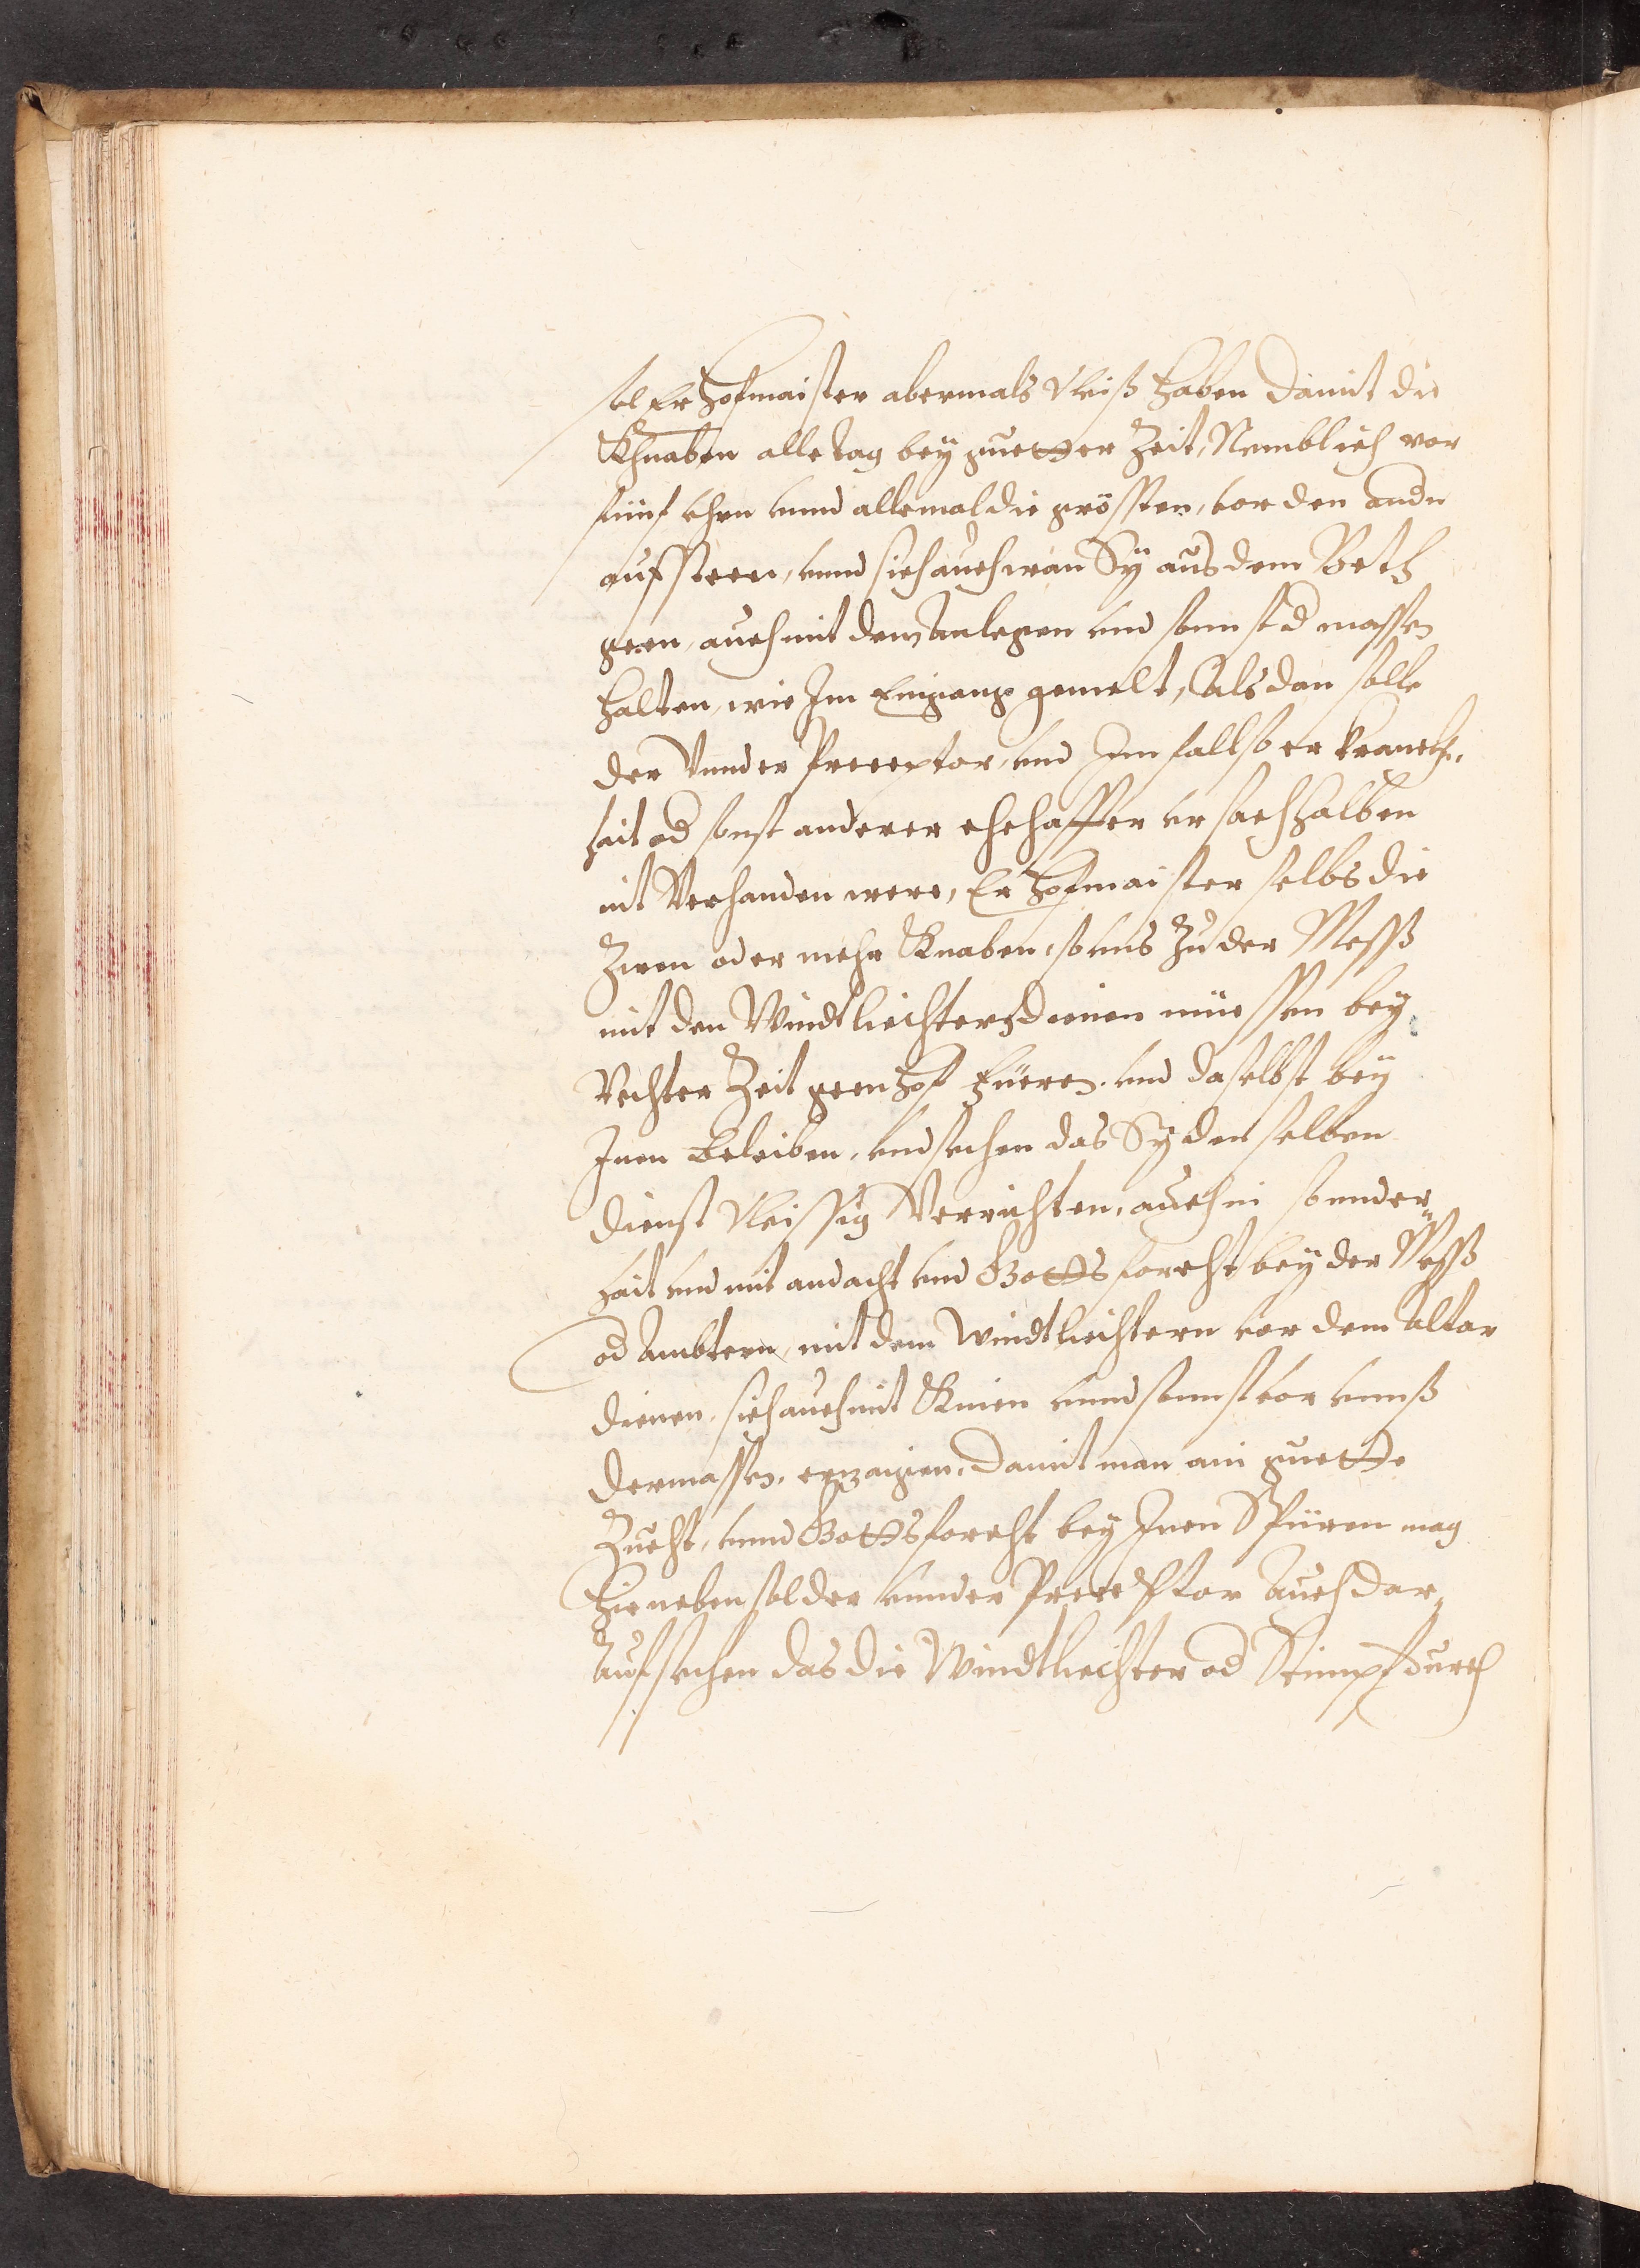 sol Er Hofmaister abermals Vleiß haben damit die
Khnaben alle tag bey guetter Zeit, Nemblich vor
fünf Vhrn vnnd allemal die grössten, vor den andn
aufsteen, vnnd sich auch wan Sy aus dem Beth
geen, auch mit dem Anlegen vnd sonnst d massen
halten, wie Im Eingang gemelt, Als dan solle
der Vnnder Preceptor, vnd Im fall so er kranckh,
hait od sonst anderer ehehaffter vrsach halben
nit Verhanden were, Er Hofmaister selbs die
Zwen oder mehr Knaben, so vns Zu der Messß
mit den Windtliechtern dienen müessen bey
Rechter Zeit geen Hof füeren, vnd daselbst bey
Inen Beleiben, vnd sechen das Sy den selben
dienst Vleissig Verrichten, auch in sonder,,
hait vnd mit andacht vnd Gottsforcht bey der Messß
od Ambtern, mit dem Windtliechtern vor dem Altar
dienen, sich auch mit Knien vnnd sonnst vor vnnß
dermassen, erzaigen, Damit man ain guette
Zucht, vnnd Gottsforcht bey Inen Spüren mag
Hieneben sol der vnnder Preceptor Auch dar,
Auf sechen das die Windtliechter od Stimpf durch